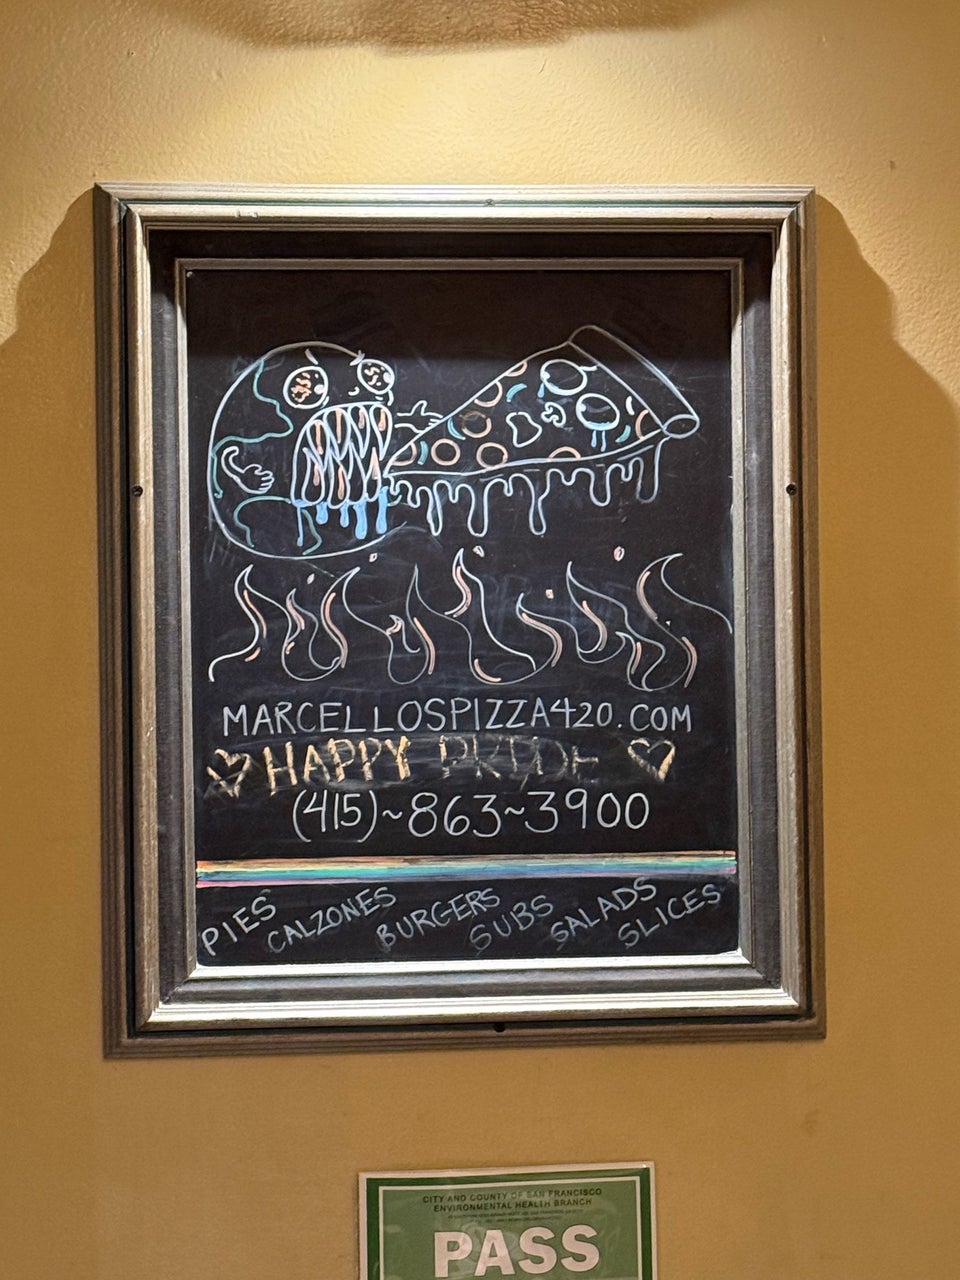 MARCELLOSPIZZA420.COM
HAPPY PRIDE
(415)~863~3900
PIES CALZONES BURGERS SUBS SALADS SLICES
CITY AND COUNTY OF SAN FRANCISCO
ENVIRONMENTAL HEALTH BRANCH
PASS